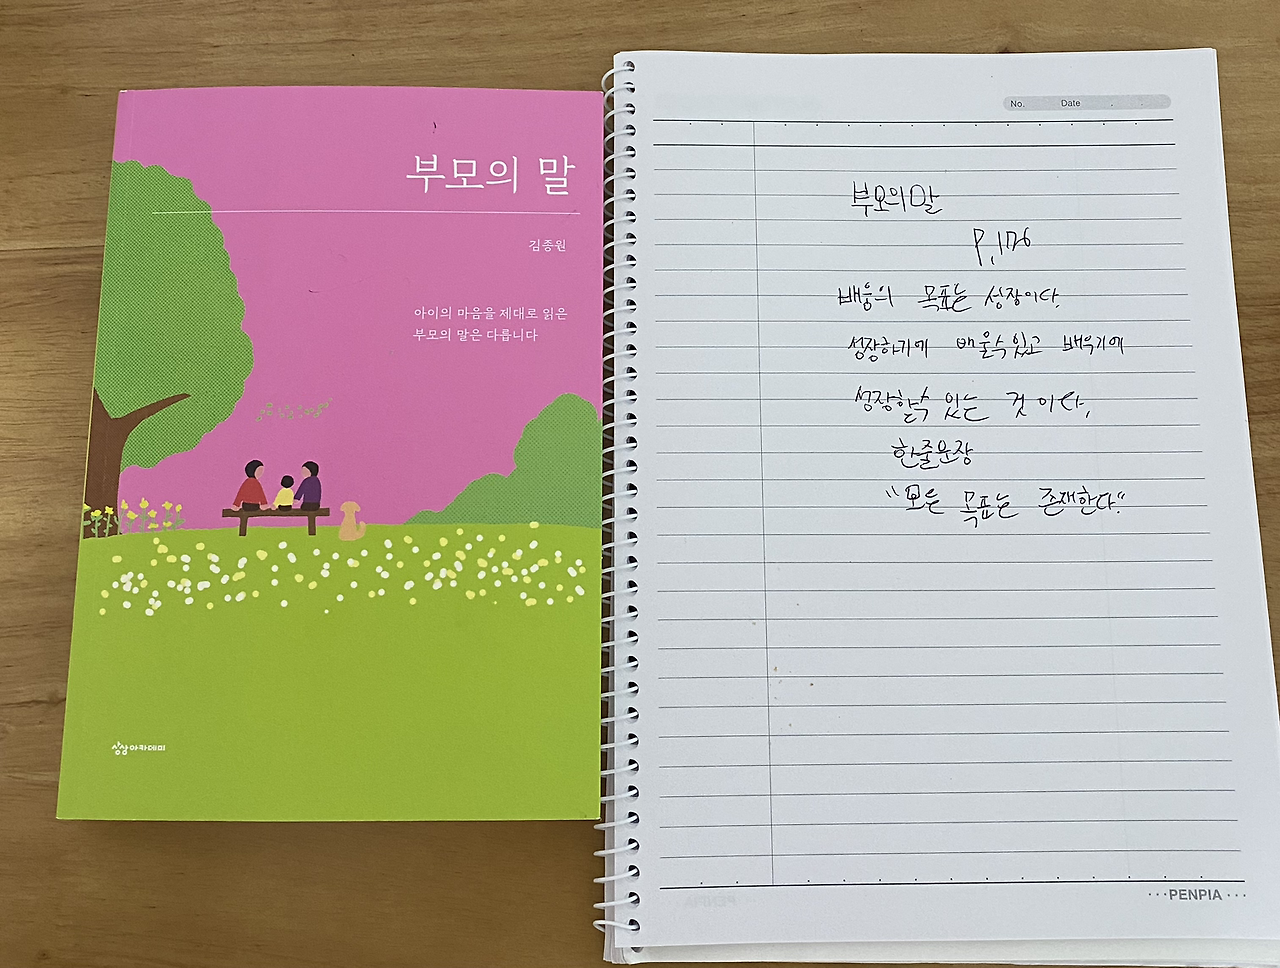 부모의 말
김종원
아이의 마음을 제대로 읽은
부모의 말은 다릅니다
상상아카데미
No. Date
부모의말
P.176
배움의 목표는 성장이다.
성장하기에 배울수있고 배우기에
성장할수 있는 것이다.
한줄문장
"모든 목표는 존재한다."
PENPIA